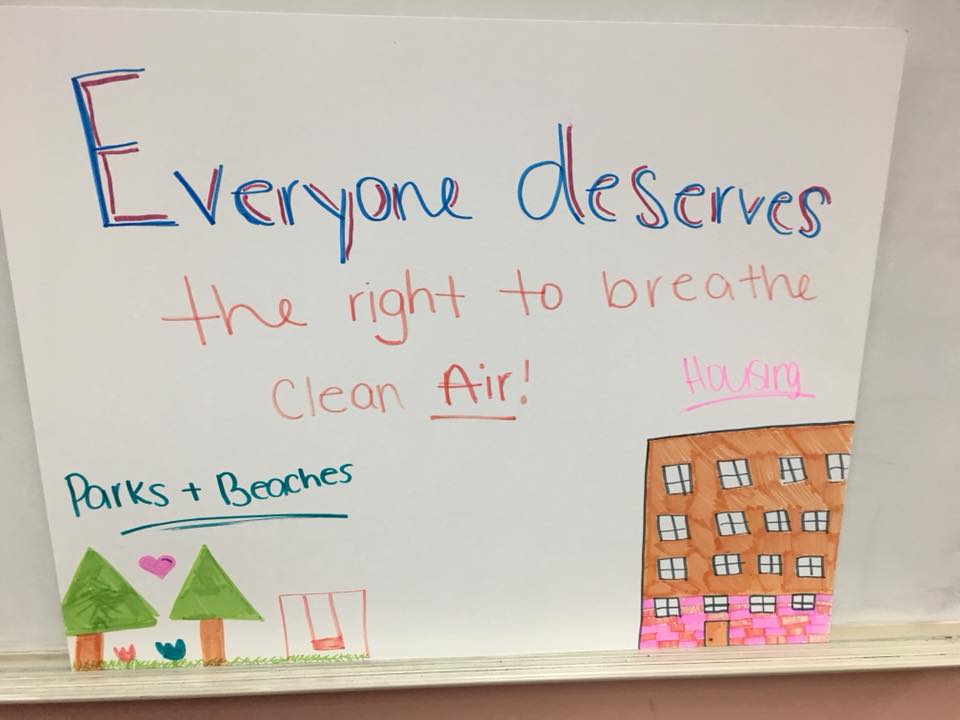 Everyone deserves
the right to breathe
Clean Air!
Housing
Parks + Beaches